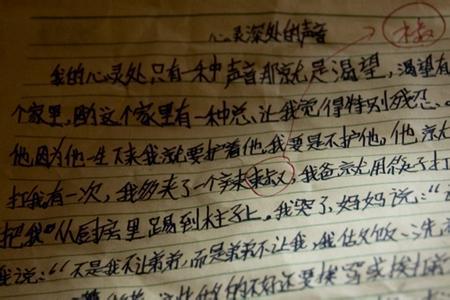 心灵深处的声音
椒
我的心灵处只有一种声音那就是渴望，渴望有
个家里，的这个家里有一种怨，让我觉得特别残忍。
他，因为他一生下来我就要护着他，我要是不护他，他就
打我有一次，我够来了一个辣束叔，我爸就用筷子打
把我"从厨房里踢到柱子上。我哭了，妈妈说："
我说："不是我不让弟弟，而是弟弟不让我，我做饭、洗
的不好还要挨骂或挨打